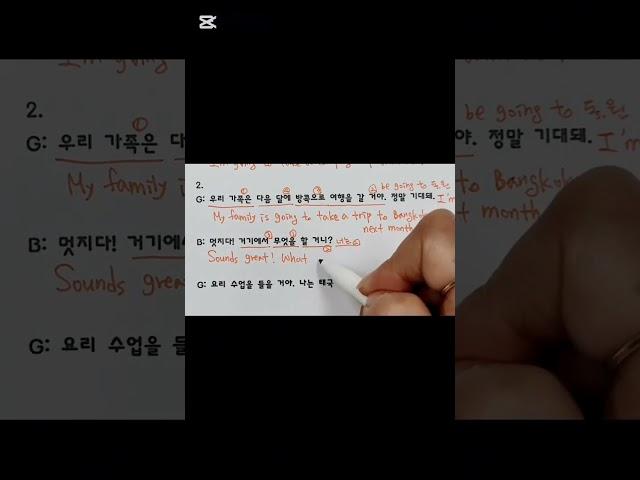 2.
be going to 동.원
G: 우리 가족은 다음 달에 방콕으로 여행을 갈 거야. 정말 기대돼. I'm
My family is going to take a trip to Bangkok
next month
B: 멋지다! 거기에서 무엇을 할 거니?
Sounds great! What
G: 요리 수업을 들을 거야. 나는 태국